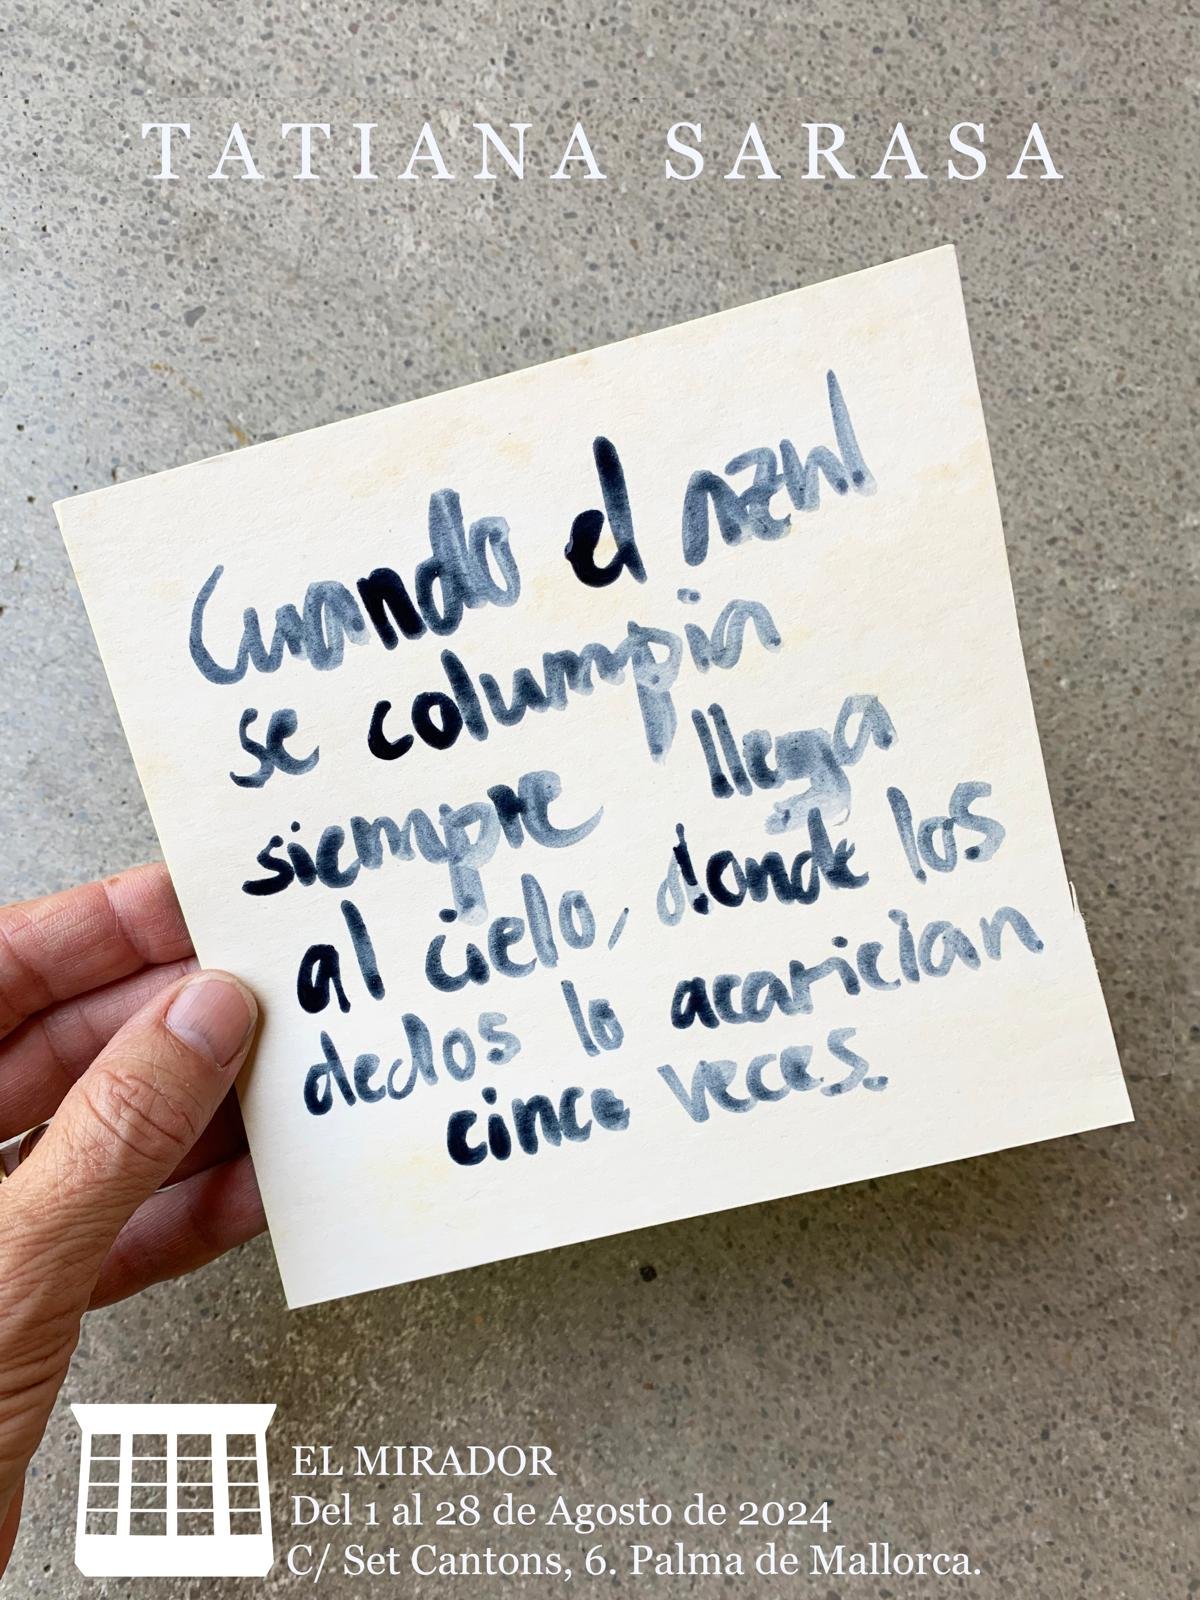 TATIANA SARASA
Cuando el azul
se columpia
siempre llega
al cielo, donde los
dedos lo acarician
cinco veces.
EL MIRADOR
Del 1 al 28 de Agosto de 2024
C/ Set Cantons, 6. Palma de Mallorca.